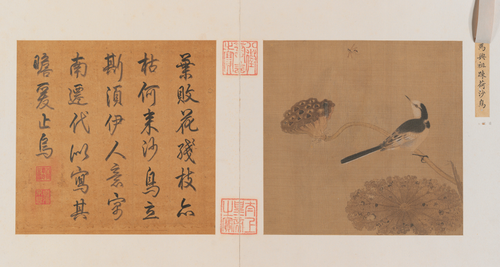 馬興祖疎荷沙鳥
葉敗花殘枝亦
枯何来沙鳥立
斯湏伊人意寄
南遷代以寫其
瞻爰止烏